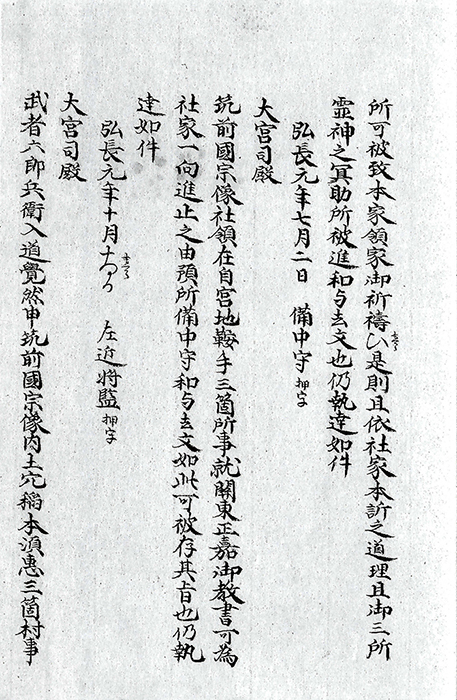 所可被致本家領家御祈禱候是則且依社家本訴之道理且御三所
霊神之冥助所被進和与去文也仍執達如件
弘長元年七月二日 備中守 押字
大宮司殿
筑前國宗像社領在自宮地鞍手三箇所事就關東正嘉御教書可為
社家一向進止之由預所備中守和与去文如此可被存其旨也仍執
達如件
弘長元年十月 左近将監 押字
大宮司殿
武者六郎兵衛入道覺然申筑前國宗像内土穴稲本須恵三箇村事